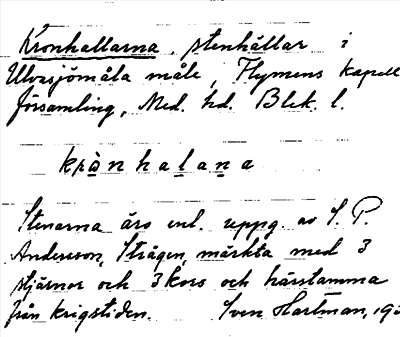 Kronhallarna, stenhällar i
Ulvasjömåla måle, Flymens kapell
församling, Med. hd. Blek. l.
krònhalana
Stenarna äro enl. uppg. av S. P.
Andersson, Strågen, märkta med 3
stjärnor och 3 kors och härstamma
från krigstiden. Sven Hartman, 19